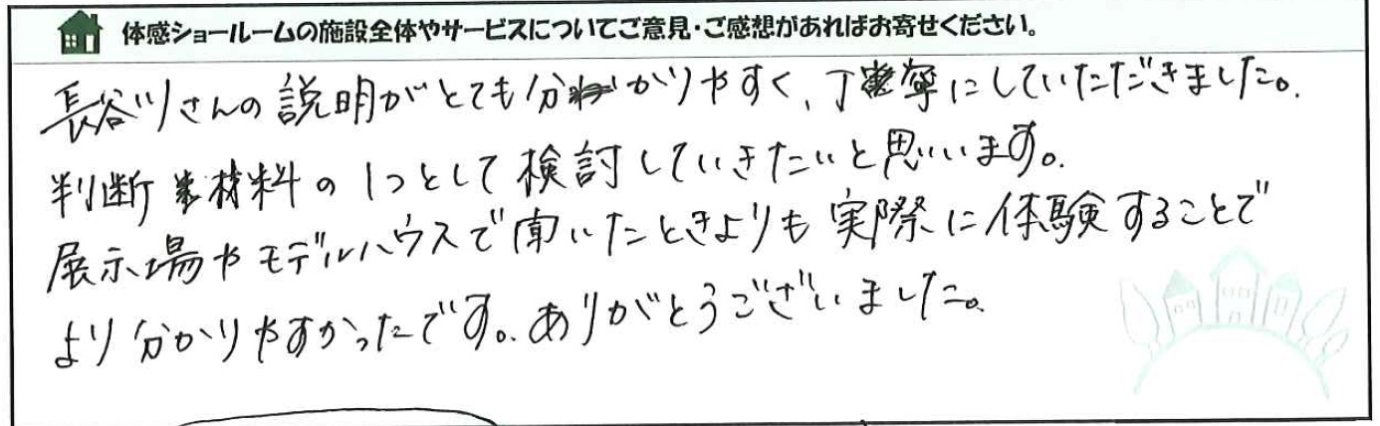 体感ショールームの施設全体やサービスについてご意見・ご感想があればお寄せください。
長谷川さんの説明がとても分かりやすく、丁寧にしていただきました。
判断材料の1つとして検討していきたいと思います。
展示場やモデルハウスで聞いたときよりも実際に体験することで
より分かりやすかったです。ありがとうございました。